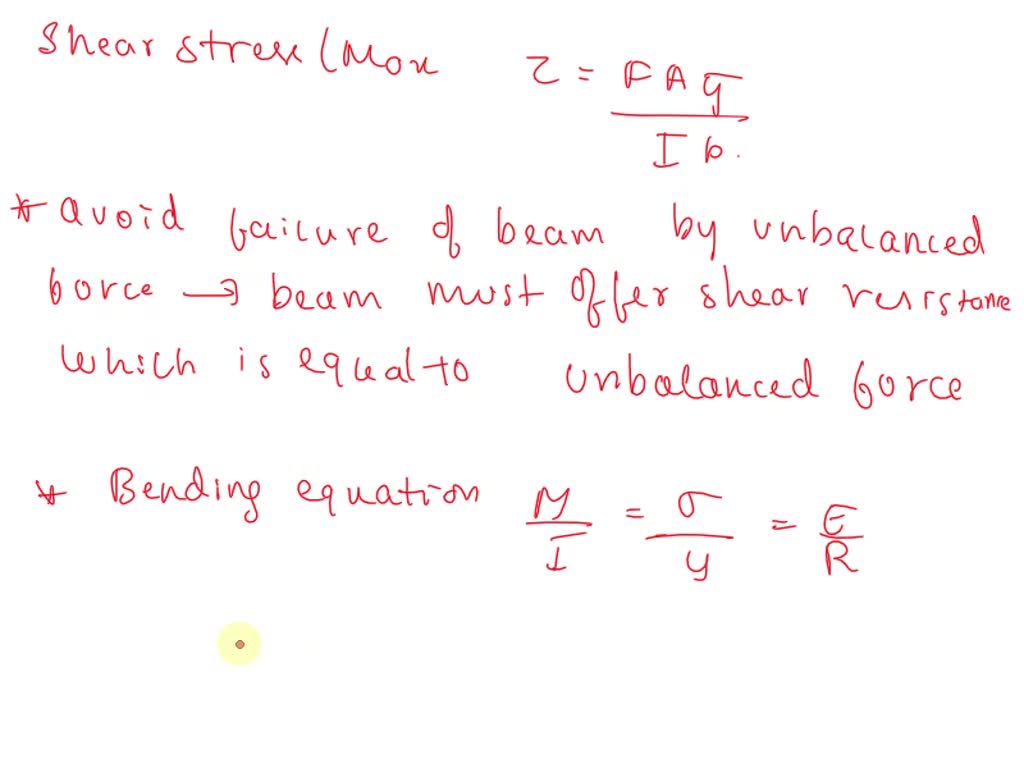 Shear stress (Max τ = FAȳ / Ib.
* avoid failure of beam by unbalanced
force → beam must offer shear resistance
which is equal to unbalanced force
* Bending equation M/I = σ/y = E/R